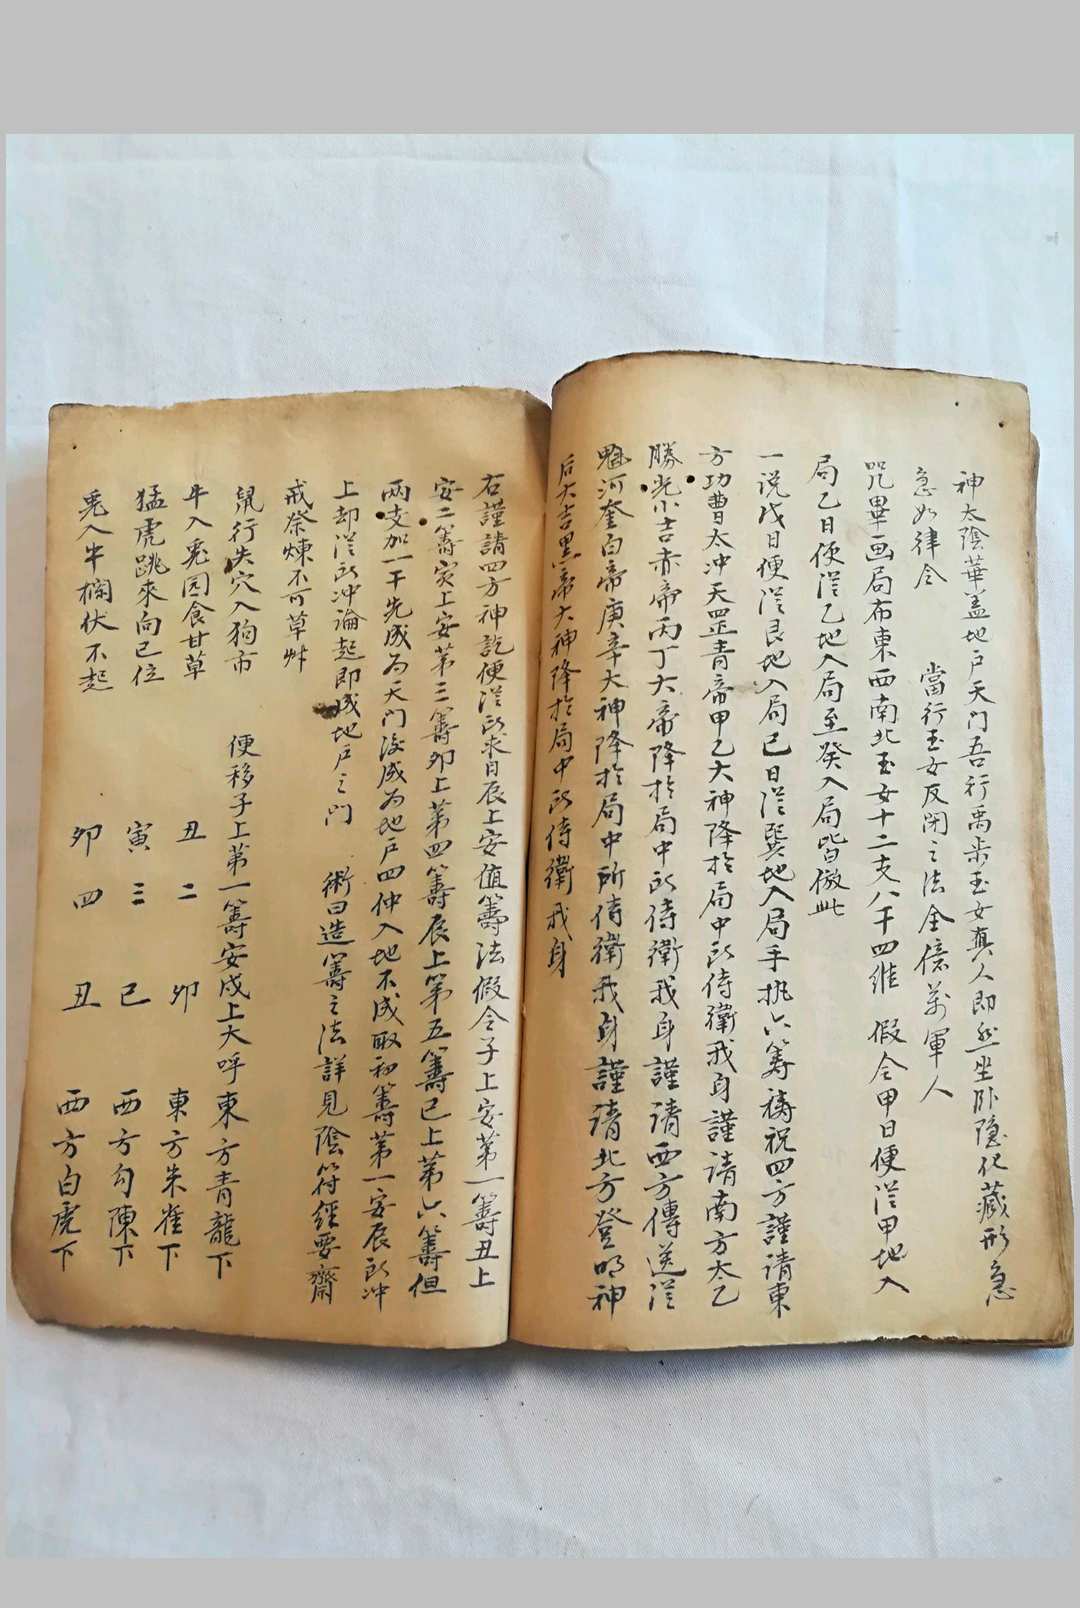 神太陰華盖地户天门吾行禹步玉女真人即然坐卧隐化藏形急
急如律令　　當行玉女反閉之法全億萬軍人
咒畢画局布東西南北玉女十二支八干四維　假令甲日便从甲地入
局乙日便从乙地入局至癸入局皆倣此
一説戊日便从艮地入局己日从巽地入局手执六筹祷祝四方謹請東
方功曹太冲天罡青帝甲乙大神降扵局中所侍衛我身謹請南方太乙
勝光小吉赤帝丙丁大帝降扵局中所侍衛我身謹请西方傳送从
魁河奎白帝庚辛大神降扵局中所侍衛我身謹请北方登明神
后大吉黑帝大神降扵局中所侍衛我身
右謹請四方神訖便从所求日辰上安值籌法假令子上安第一籌丑上
安二籌寅上安第三籌卯上第四籌辰上第五籌巳上第六籌但
兩支加一干先成為天门後成為地户四仲入地不成取初籌第一安辰所冲
上却从所冲論起即成地户之门　術曰造籌之法詳見陰符經要齋
戒祭煉不可草艸
鼠行失穴入狗市　便移子上第一籌安戌上大呼東方青龍下
牛入兎园食甘草　丑二卯　東方朱雀下
猛虎跳來向巳位　寅三巳　西方勾陳下
兎入牛欄伏不起　卯四丑　西方白虎下